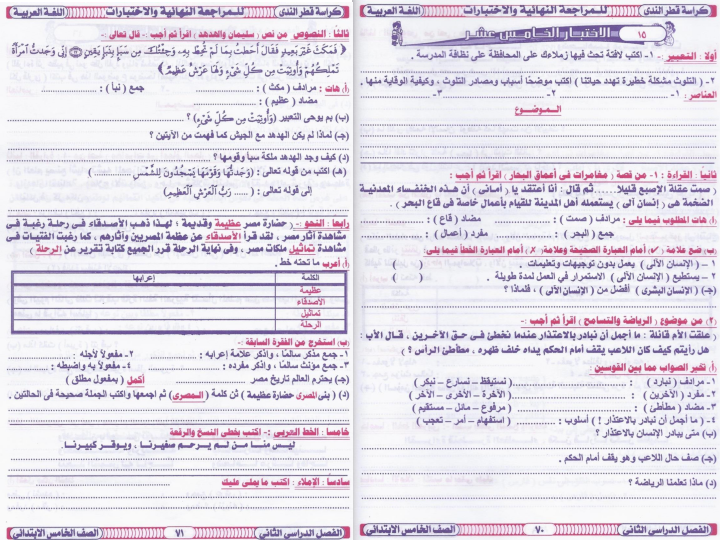 كراسة قطر الندى
للمراجعة النهائية والاختبارات
اللغة العربية
١٥
الاختبار الخامس عشر
أولا : التعبير :- ١- اكتب لافتة تحث فيها زملاءك على المحافظة على نظافة المدرسة .
٢- ( التلوث مشكلة خطيرة تهدد حياتنا ) اكتب موضحًا أسباب ومصادر التلوث ، وكيفية الوقاية منها .
العناصر : ١- ٢- ٣-
الموضوع
ثانيا : القراءة : ١- من قصة ( مغامرات فى أعماق البحار ) اقرأ ثم أجب :
( صبت عقلة الإصبع قليلا...... ثم قال : أنا أعتقد يا ( أمانى ) أن هذه الخنفساء المعدنية
الضخمة هى ( إنسان آلى ) يستعمله أهل المدينة للقيام بأعمال خاصة فى قاع البحار ) .
(أ) هات المطلوب فيما يلى : مرادف ( صمت ) : مضاد ( قاع ) :
جمع ( البحر ) : مفرد ( أعمال ) :
(ب) ضع علامة ( ✓ ) أمام العبارة الصحيحة وعلامة ( ✗ ) أمام العبارة الخطأ فيما يلى :
١ - ( الإنسان الآلى ) يعمل بدون توجيهات وتعليمات . ( )
٢ - يستطيع ( الإنسان الآلى ) الاستمرار فى العمل لمدة طويلة . ( )
(جـ) ( الإنسان البشرى ) أفضل من ( الإنسان الآلى ) ، فلماذا ؟
(٢) من موضوع ( الرياضة والتسامح ) اقرأ ثم أجب :-
( علقت الأم قائلة : ما أجمل أن نبادر بالاعتذار عندما نخطئ فى حق الآخرين ، قال الأب :
هل رأيتم كيف كان اللاعب يقف أمام الحكم يداه خلف ظهره ، مطأطئ الرأس ؟ )
(أ) تخير الصواب مما بين القوسين :
١- مرادف ( نبادر ) : ( نستيقظ – نسارع – نبكر )
٢- مفرد ( الآخرين ) : ( الآخرة – الأخرى – الآخر )
٣- مضاد ( مطأطئ ) : ( مرفوع – مائل – مستقيم )
٤- ( ما أجمل أن نبادر بالاعتذار ! ) أسلوب : ( استفهام – أمر – تعجب )
(ب) متى يبادر الإنسان بالاعتذار ؟
(جـ) صف حال اللاعب وهو يقف أمام الحكم .
(د) ماذا تعلمنا الرياضة ؟
الفصل الدراسى الثانى
٧٠
الصف الخامس الابتدائى
كراسة قطر الندى
للمراجعة النهائية والاختبارات
اللغة العربية
ثالثا : النصوص من نص ( سليمان والهدهد ) اقرأ ثم أجب :- قال تعالى :-
﴿ فَمَكَثَ غَيْرَ بَعِيدٍ فَقَالَ أَحَطتُ بِمَا لَمْ تُحِطْ بِهِ وَجِئْتُكَ مِن سَبَإٍ بِنَبَإٍ يَقِينٍ ۝ إِنِّى وَجَدتُّ امْرَأَةً
تَمْلِكُهُمْ وَأُوتِيَتْ مِن كُلِّ شَىْءٍ وَلَهَا عَرْشٌ عَظِيمٌ ﴾
(أ) هات : مرادف ( مكث ) : جمع ( نبأ ) :
مضاد ( عظيم ) :
(ب) بم يوحى التعبير ( وَأُوتِيَتْ مِن كُلِّ شَىْءٍ ) ؟
(جـ) لماذا لم يكن الهدهد مع الجيش كما فهمت من الآيتين ؟
(د) كيف وجد الهدهد ملكة سبأ وقومها ؟
(هـ) اكتب من قوله تعالى : ( وَجَدتُّهَا وَقَوْمَهَا يَسْجُدُونَ لِلشَّمْسِ ......
إلى قوله تعالى : ( ...... رَبُّ الْعَرْشِ الْعَظِيمِ )
رابعا : النحو :- ( حضارة مصر عظيمة وقديمة ؛ لهذا ذهب الأصدقاء فى رحلة رغبة فى
مشاهدة آثار مصر ، لقد قرأ الأصدقاء عن عظمة المصريين وآثارهم ، كما رغبت الفتيات فى
مشاهدة تماثيل ملكات مصر ، وفى نهاية الرحلة قرر الجميع كتابة تقرير عن الرحلة )
(أ) أعرب ما تحته خط .
الكلمة إعرابها
عظيمة
الأصدقاء
تماثيل
الرحلة
(ب) استخرج من الفقرة السابقة :-
١- جمع مذكر سالمًا ، واذكر علامة إعرابه : ٢- مفعولاً لأجله :
٣- جمع مؤنث سالمًا ، واذكر مفرده : ٤- مفعولاً به واضبطه :
(جـ) يحترم العالم تاريخ مصر أكمل ( بمفعول مطلق )
(د) ( بنى المصرى حضارة عظيمة ) ثن كلمة ( المصرى ) ثم اجمعها واكتب الجملة صحيحة فى الحالتين .
خامسا : الخط العربى :- اكتب بخطى النسخ والرقعة
ليس منا من لم يرحم صغيرنا ، ويوقر كبيرنا .
سادسا : الإملاء : اكتب ما يملى عليك
الفصل الدراسى الثانى
٧١
الصف الخامس الابتدائى